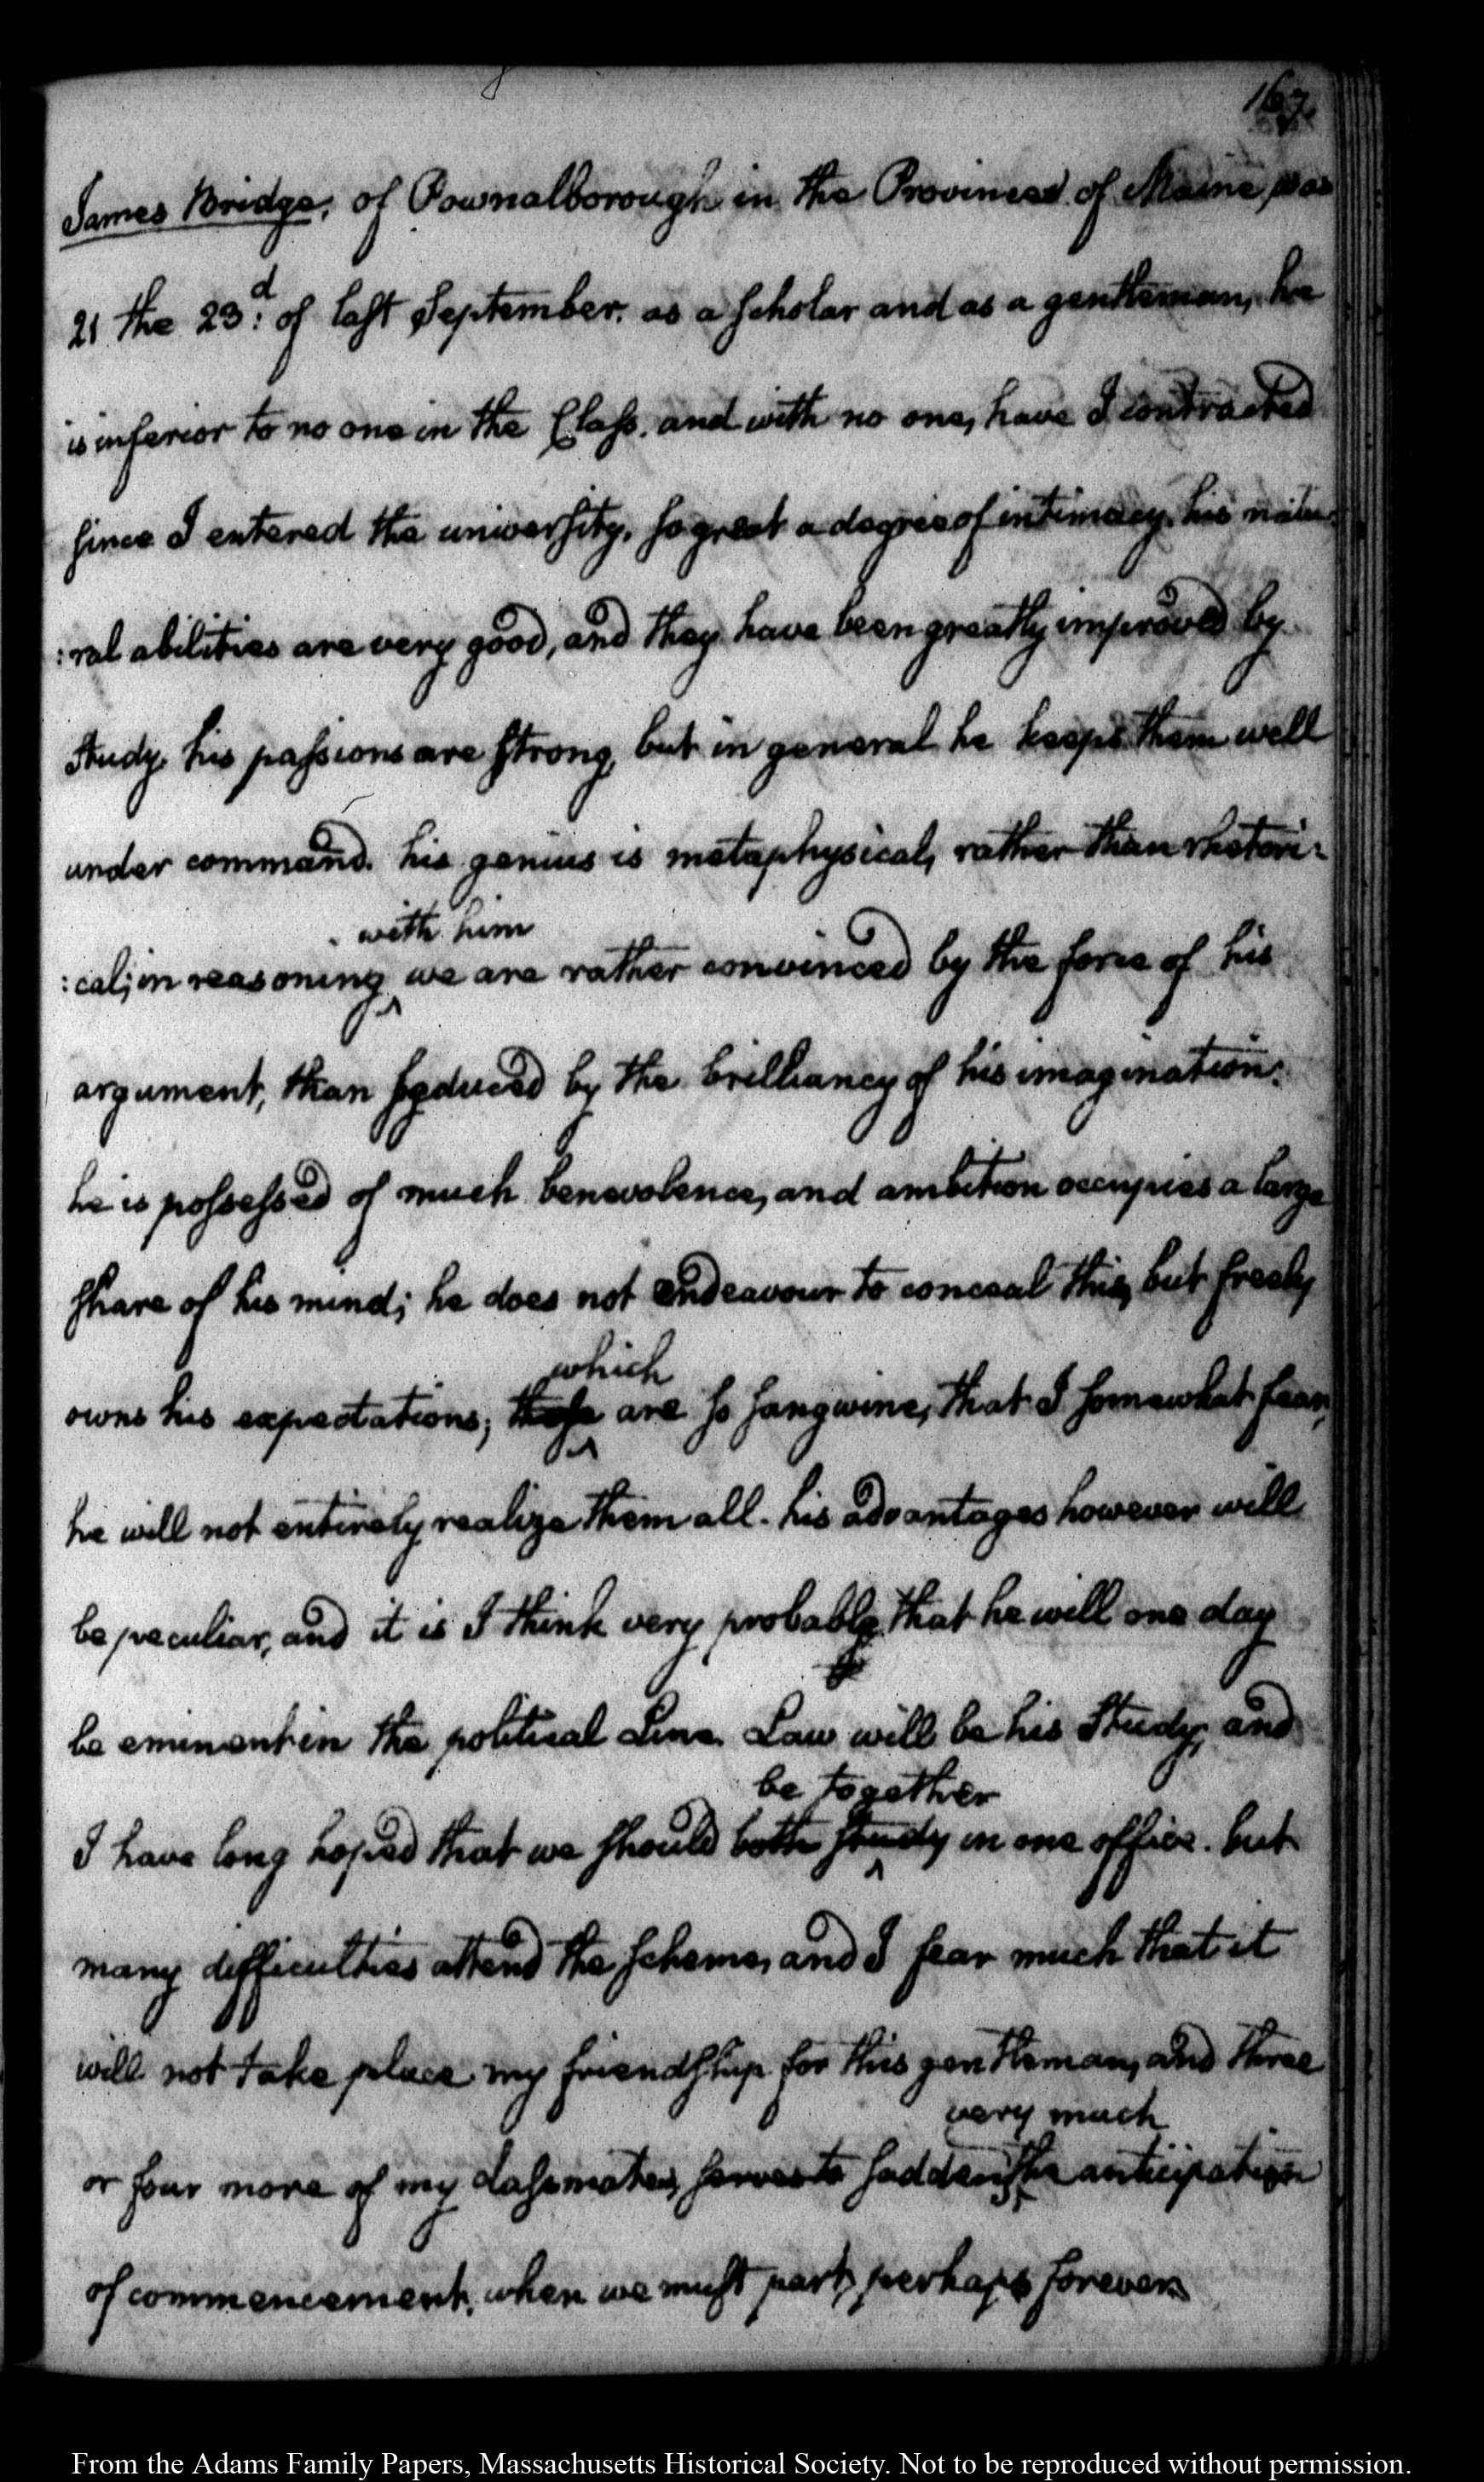 167.
James Bridge, of Pownalborough in the Province of Maine, was
21 the 23.d of last September. as a scholar and as a gentleman, he
is inferior to no one in the Class. and with no one, have I contracted
since I entered the university, so great a degree of intimacy. his natu:
:ral abilities are very good, and they have been greatly improved by
study. his passions are strong, but in general he keeps them well
under command. his genius is metaphysical, rather than rhetori:
with him
:cal; in reasoning we are rather convinced by the force of his
argument, than seduced by the brilliancy of his imagination:
he is possessed of much benevolence, and ambition occupies a large
share of his mind; he does not endeavour to conceal this, but freely
which
owns his expectations; these are so sangwine, that I somewhat fear,
he will not entirely realize them all. his advantages however will
be peculiar, and it is I think very probable that he will one day
be eminent in the political Line. Law will be his Study, and
be together
I have long hoped that we should both study in one office. but
many difficulties attend the scheme, and I fear much that it
will not take place. my friendship for this gentleman, and three
very much
or four more of my classmates, serves to sadden the anticipation
of commencement, when we must part, perhaps forever.
From the Adams Family Papers, Massachusetts Historical Society. Not to be reproduced without permission.